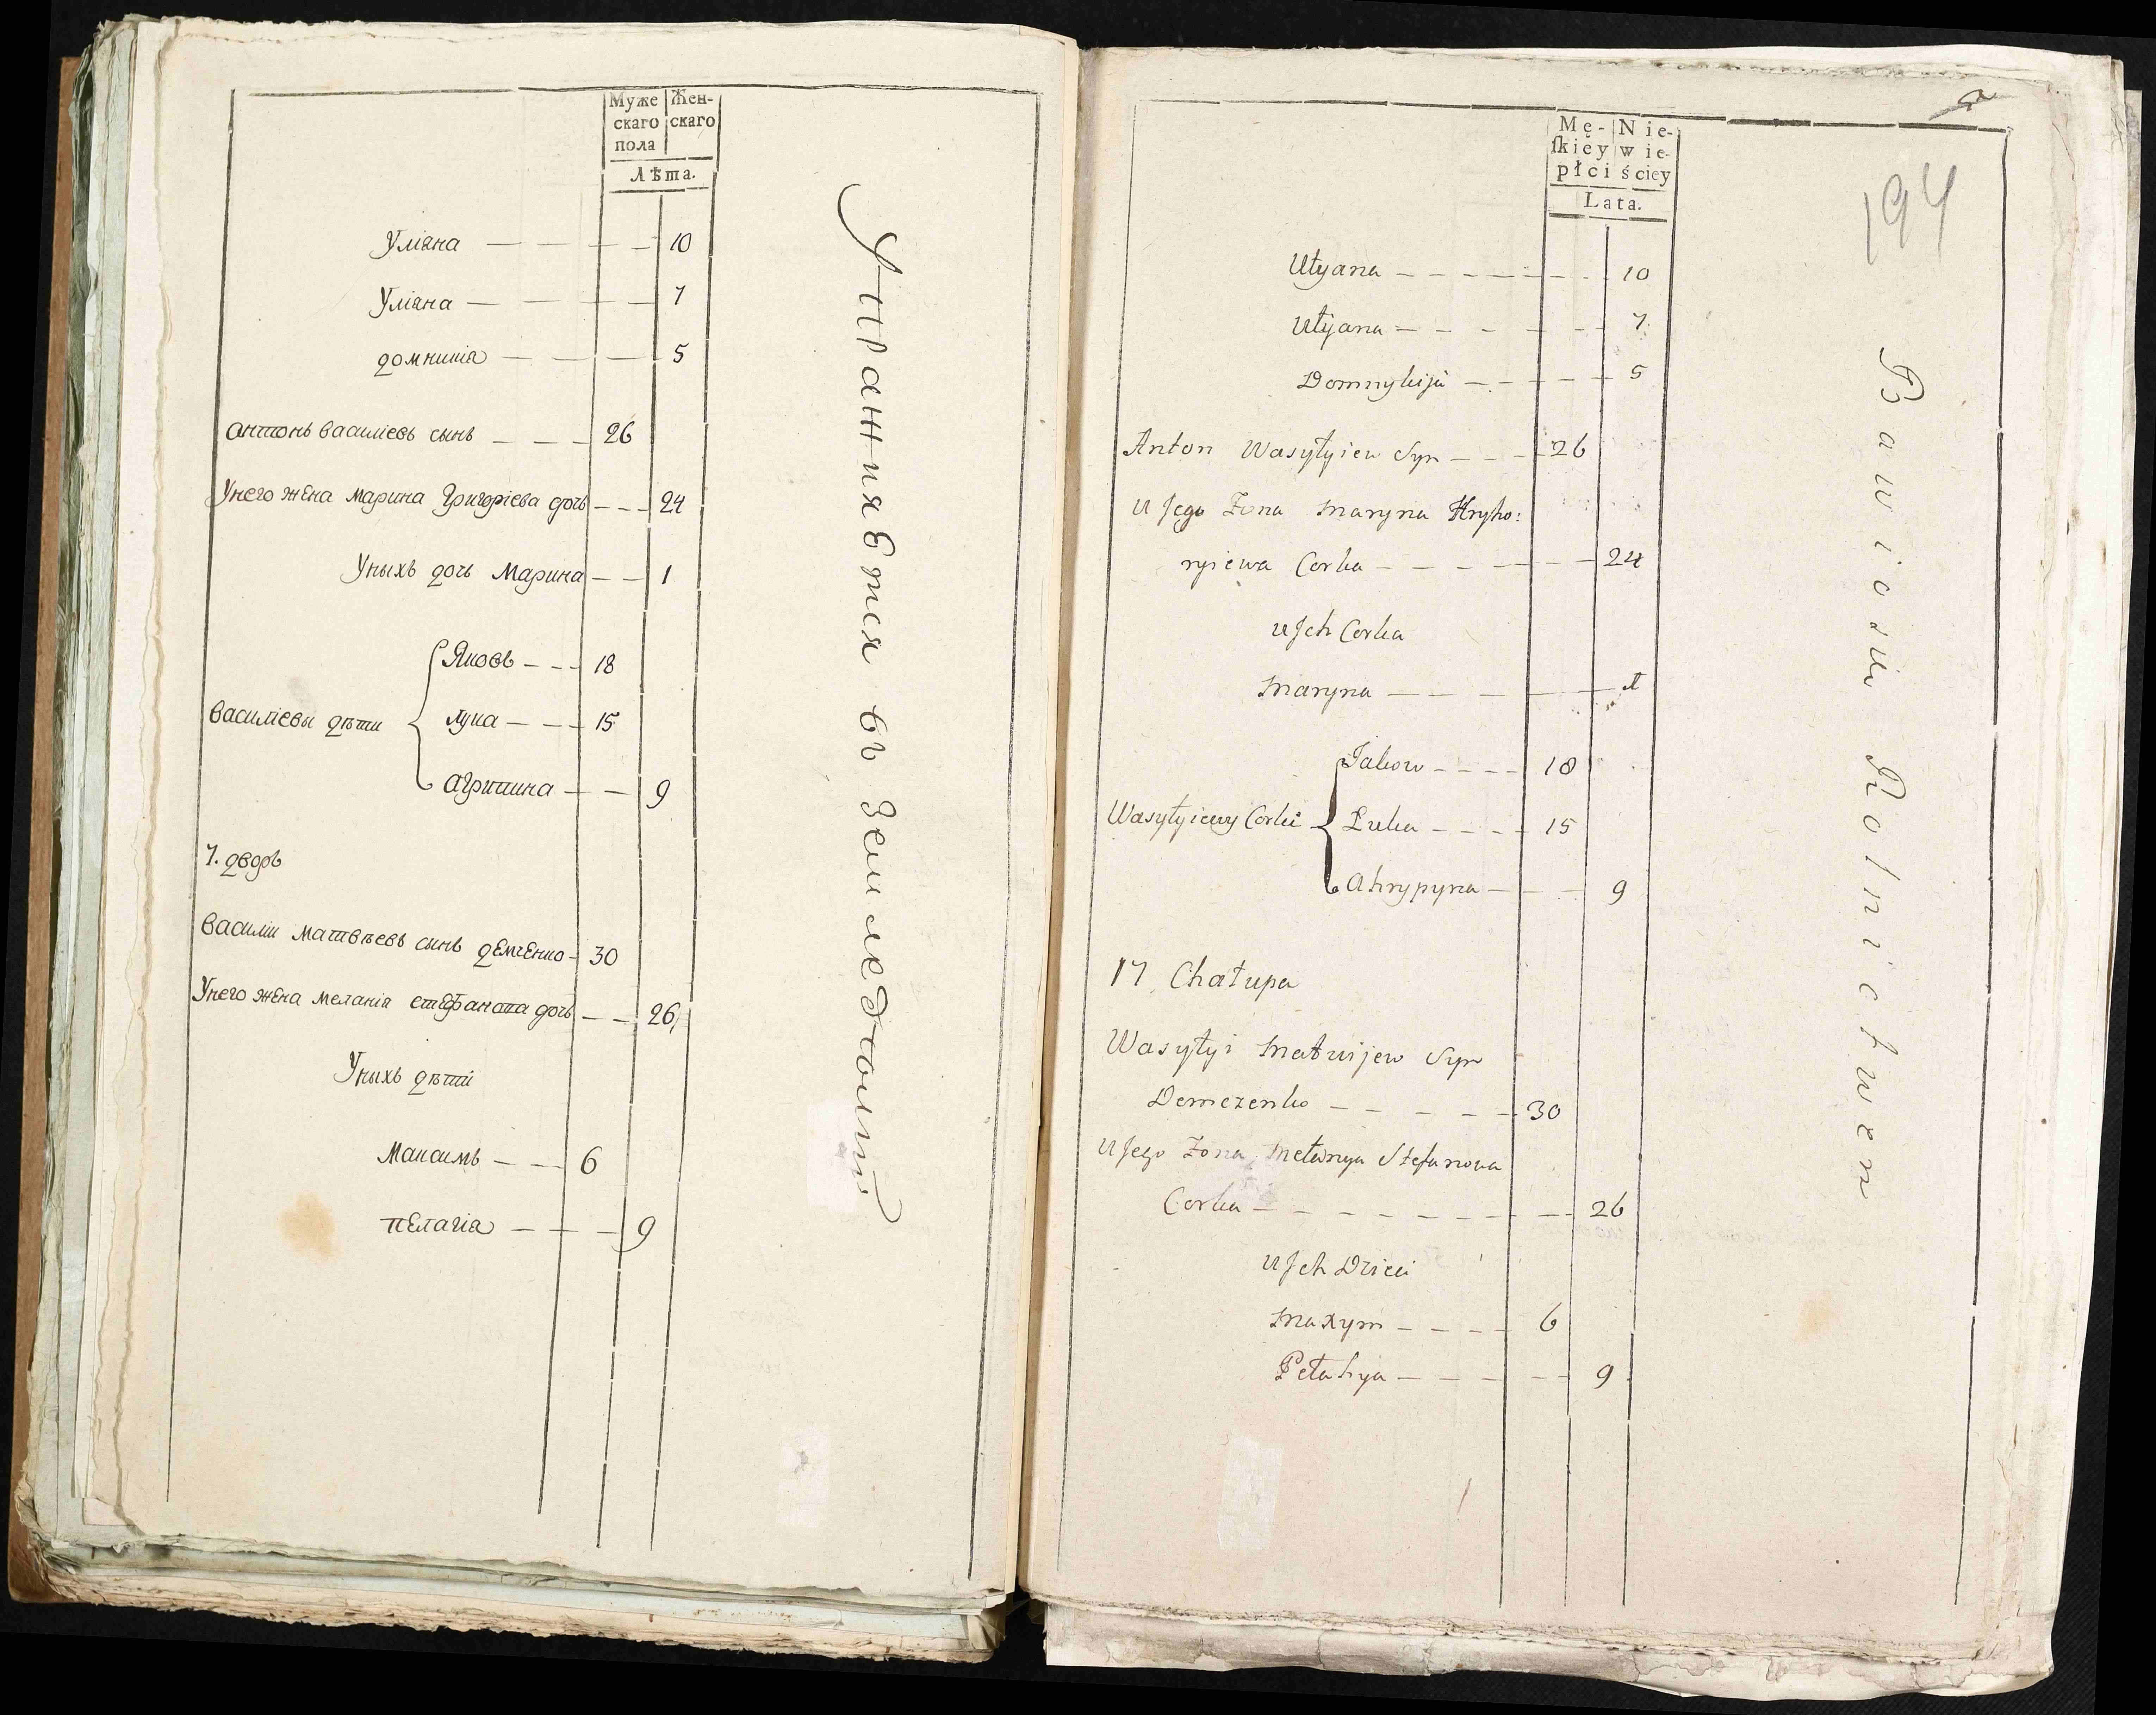 Муже
скаго
пола
Жен-
скаго
Лѣта.
Уліяна — — — — 10
Уліяна — — — — 7
домникіа — — — 5
антонъ василіевъ сынъ — — — 26
Унего жена марина Григоріева дочь — — — 24
Уныхъ дочь Марина — — 1
василіевы дѣти
Яковъ — — — 18
лука — — — 15
агрипина — — 9
7. дворъ
василіи матвѣевъ сынъ демченко - 30
Унего жена меланія стефанова дочь — — 26
Уныхъ дѣти
Максимъ — — — 6
пелагіа — — — 9
Упражняется въ
Mę-
ſkiey
płci
Nie-
wie-
ściey
Lata.
194
Ulyana — — — — — 10
Ulyana — — — — — 7
Domnykija — — — — 5
Anton Wasylyiew Syn — — — 26
u Jego Żona Maryna Hryho:
ryiewa Corka — — — — — 24
u Jch Corka
Maryna — — — — — 1
Wasylyiewy Corki
Jakow — — — — 18
Łuka — — — — 15
Ahrypyna — — — 9
17 Chałupa
Wasylyi Matwijew Syn
Demczenko — — — — — 30
u Jego Żona Mełanya Stefanowa
Corka — — — — — — — 26
u Jch Dzieci
Maxym — — — — 6
Pełahya — — — — — 9
Bawiosie Rolnictwem